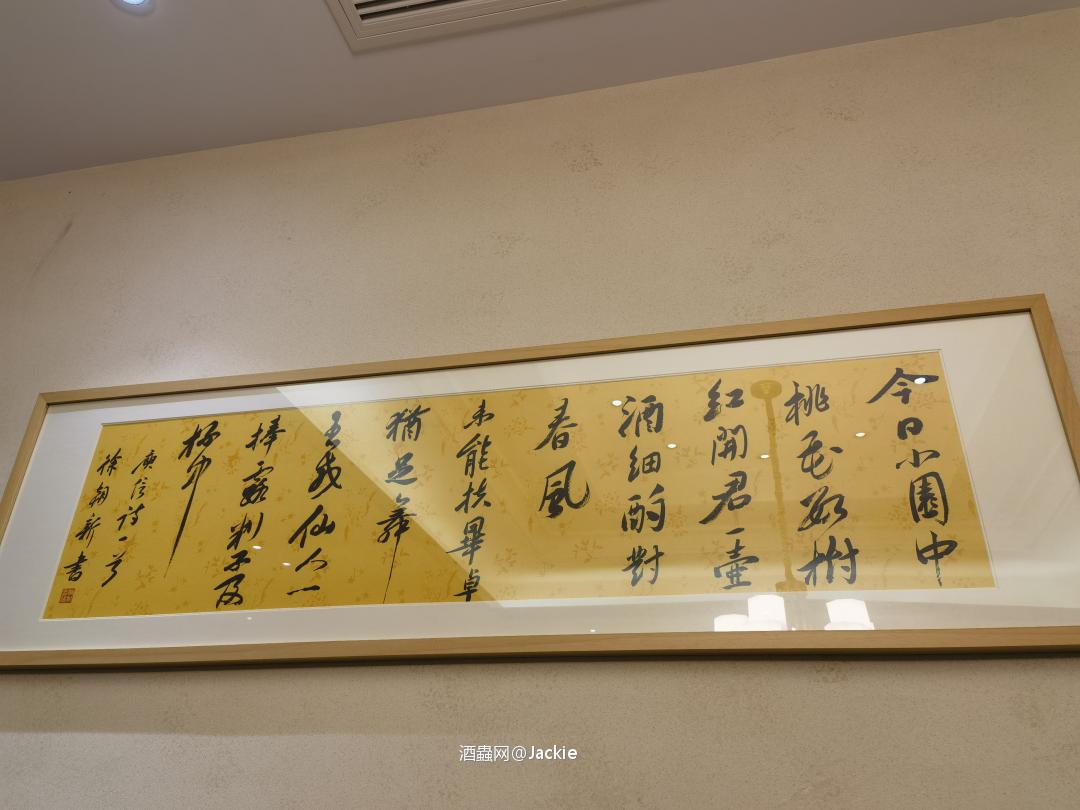 今日小園中
桃花數樹
紅開君一壺
酒細酌對
春風
未能扶畢卓
猶足舞
王戎仙人一
捧露判不及
杯中
庾信詩一首
徐新書
酒蟲网@Jackie